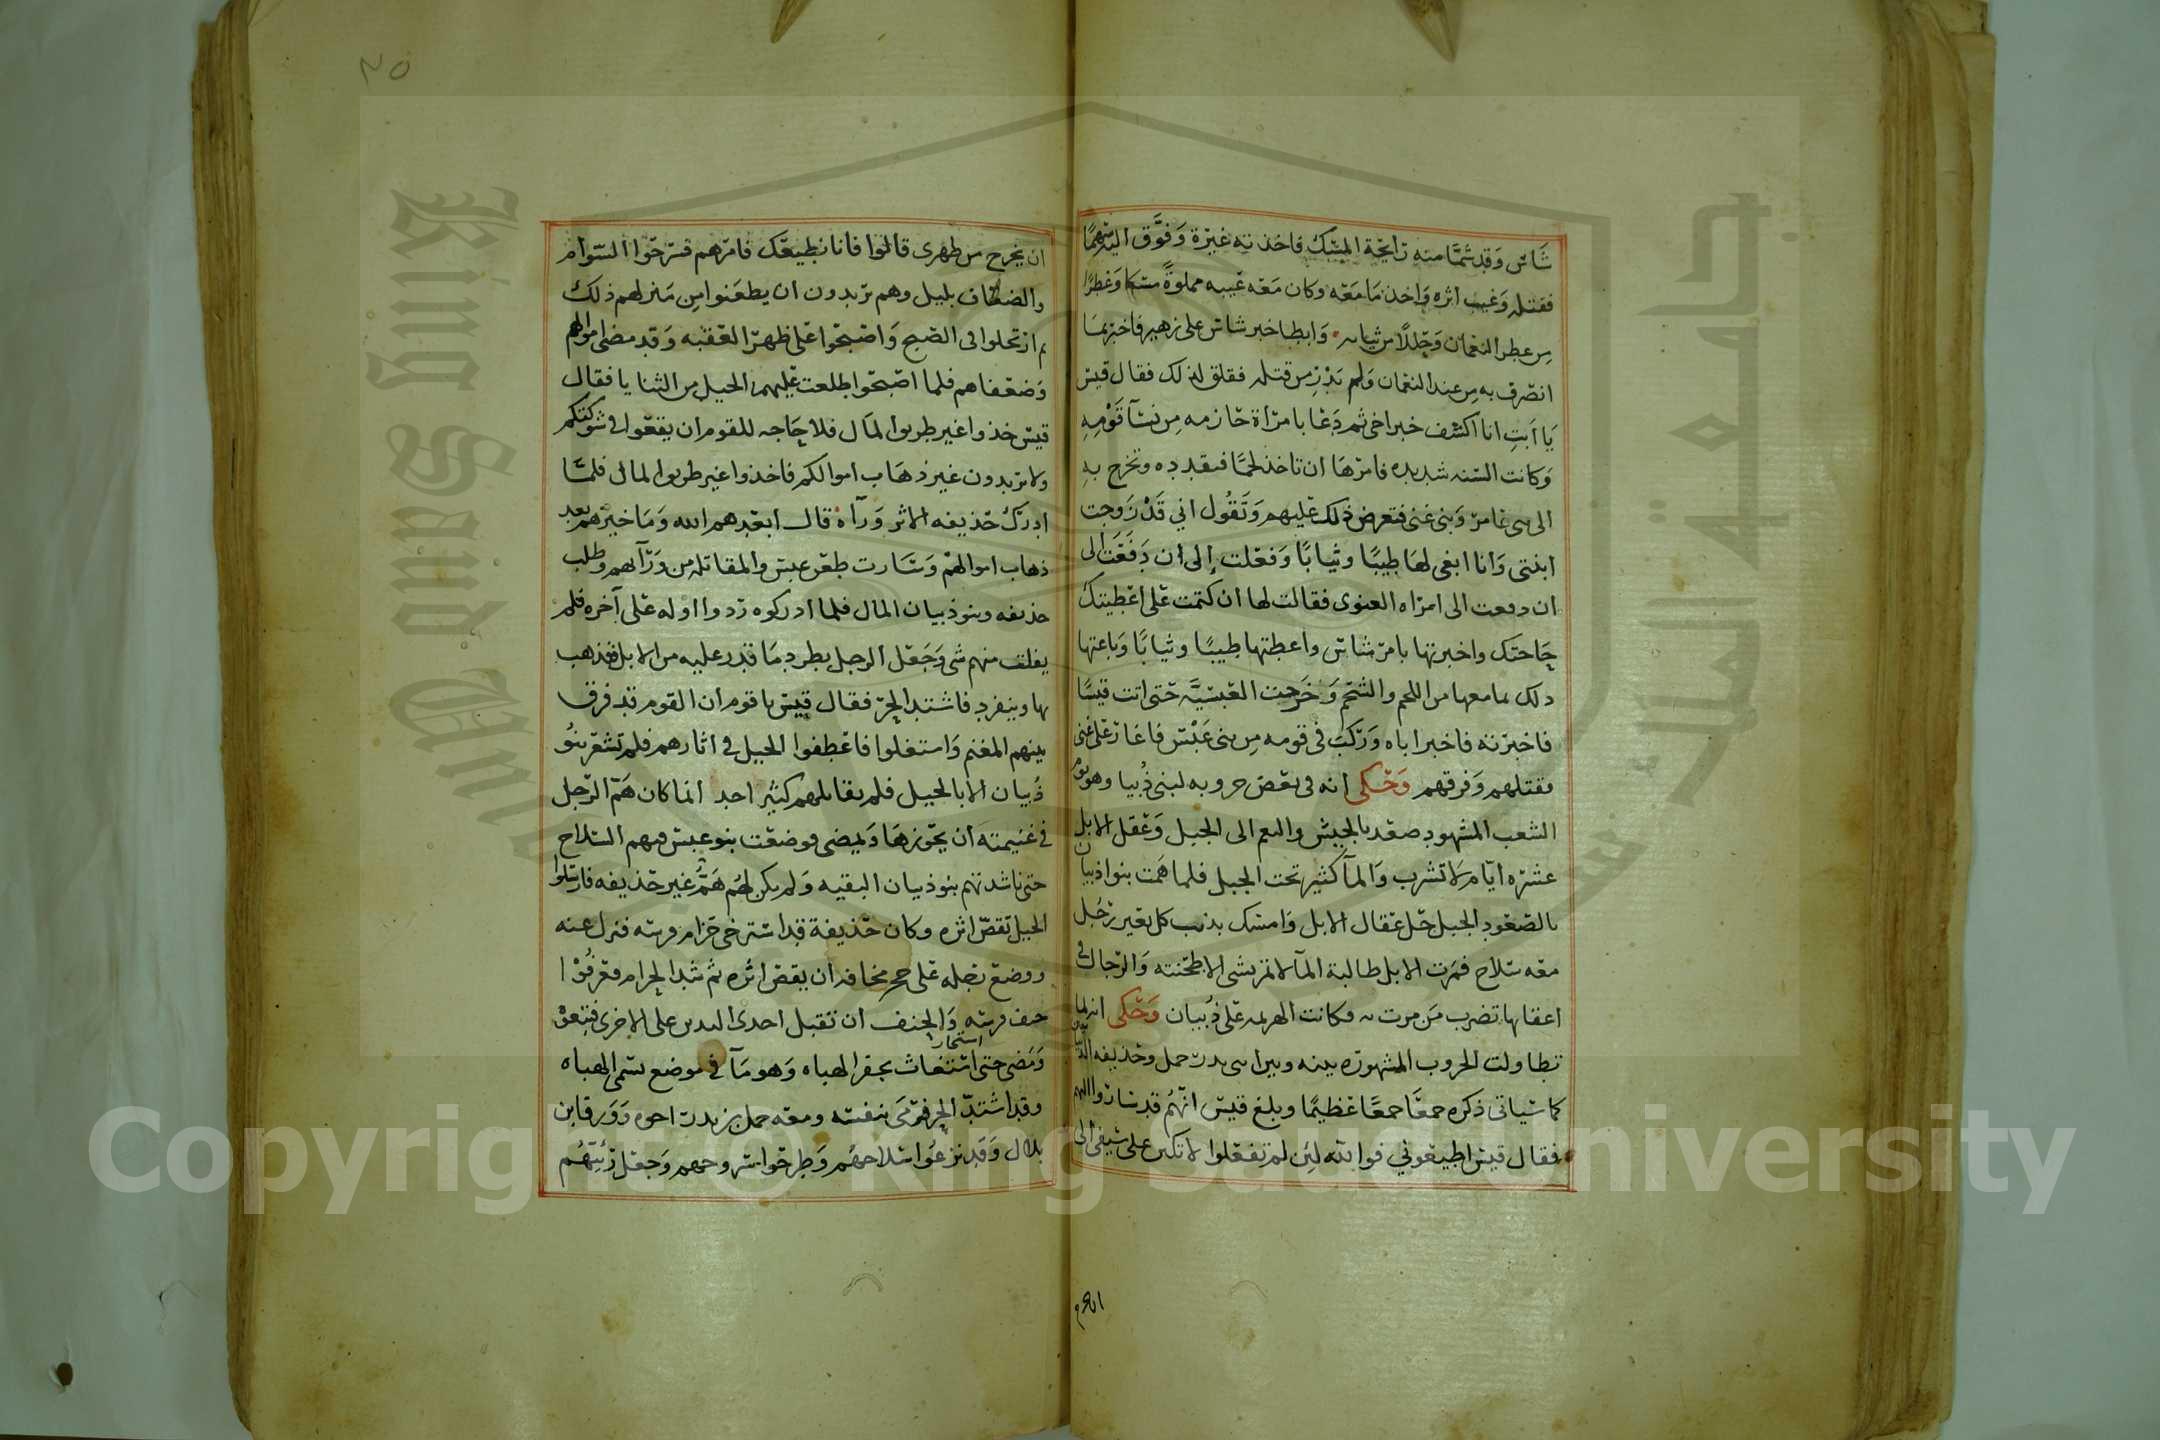 شاس وقد شما منه رائحة المسك فاخذته غيرة وفوق اليه سهما
فقتله وغيب اثره واخذ ما معه وكان معه عيبه مملوة مسكا وعطرا
من عطر النعمان وحللا من ثيابه وابطا خبر شاس على زهير فاخبر بما
انصرف به من عند النعمان ولم يدر من قتله فقلق لذلك فقال قيس
يا ابت انا اكشف خبر اخي ثم دعا بامراة حازمه من نسآ قومه
وكانت السنه شديده فامرها ان تاخذ لحما فتقدده وتخرج به
الى بني عامر وبني غني فتعرض ذلك عليهم وتقول اني قد زوجت
ابنتي وانا ابغي لها طيبا وثيابا وفعلت إلى ان دفعت الى
ان دفعت الى امراه الغنوي فقالت لها ان كتمت علي اعطيتك
حاجتك واخبرتها بامر شاس واعطتها طيبا وثيابا وباعتها
ذلك بما معها من اللحم والشحم وخرجت العبسيه حتى اتت قيسا
فاخبرته فاخبر اباه وركب في قومه من بني عبس فاغار على غني
فقتلهم وفرقهم وحكى انه في بعض حروبه لبني ذبيا وهو يوم
الشعب المشهود صعد بالجيش والنعم الى الجبل وعقل الابل
عشره ايام لا تشرب والمآ كثير تحت الجبل فلما همت بنوا ذبيان
بالصعود الجبل حل عقال الابل وامسك بذنب كل بعير رجل
معه سلاح فمرت الابل طالبة المآ لا تمر بشي الا طحنته والرجال في
اعقابها تضرب من مرت به فكانت الهزيمه على ذبيان وحكى انه لما
تطاولت الحروب المشهوره بينه وبين ابني بدر حمل وحذيفه
كما سياتي ذكره جمعا جمعا عظيما وبلغ قيس انهم قد ساروا اليهم
فقال قيس اطيعوني فوالله لئن لم تفعلوا لا تكين على سيفي الى
ان يخرج من ظهري قالوا فانا نطيعك فامرهم فسرحوا السوام
والضعاف بليل وهم يريدون ان يظعنوا من منزلهم ذلك
ثم ارتحلوا في الصبح واصبحوا على ظهر العقبه وقد مضى اموالهم
وضعفاهم فلما اصبحوا طلعت عليهم الخيل من الثنايا فقال
قيس خذوا غير طريق المال فلا حاجه للقوم ان يقعوا في شوكتكم
ولا يريدون غير ذهاب اموالكم فاخذوا غير طريق المال فلما
ادرك حذيفه الاثر ورآه قال ابعدهم الله وما خيرهم بعد
ذهاب اموالهم وسارت ظعن عبس والمقاتله من ورآئهم وطلب
حذيفه وبنو ذبيان المال فلما ادركوه ردوا اوله على آخره فلم
يفلت منهم شي وجعل الرجل يطرد ما قدر عليه من الابل فيذهب
بها وينفرد فاشتد الحر فقال قيس يا قوم ان القوم قد فرق
بينهم المغنم واستغلوا فاعطفوا الخيل في اثارهم فلم تشعر بنو
ذبيان الا بالخيل فلم يقاتلهم كثير احد انما كان هم الرجل
في غنيمته ان يحوزها ويمضي فوضعت بنو عبس فيهم السلاح
حتى ناشدتهم بنو ذبيان البقيه ولم يكن لهم هم غير حذيفه فارسلوا
الخيل تقص اثره وكان حذيفة قد استرخى حزام فرسه فنزل عنه
ووضع رجله على حجر مخافة ان يقص اثره ثم شد الحزام فعرفوا
حنف فرسه والحنف ان تقبل احدى اليدين على الاخرى فتبعوه
ومضى حتى استغاث بجفر الهباه وهو مآ في موضع يسمى الهباه
وقد اشتد الحر فرمى بنفسه ومعه حمل بن بدر اخوه وورقا بن
بلال وقد نزعوا سلاحهم وطرحوا سروجهم وجعل ربيئهم